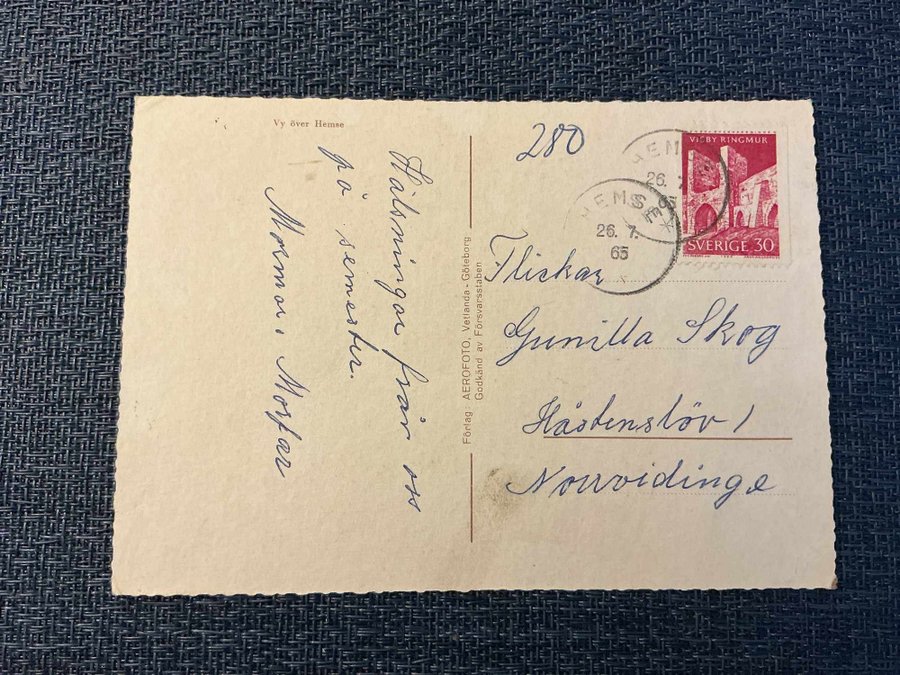 Vy över Hemse
Hälsningar från oss
på semester.
Mormor, Morfar
Förlag: AEROFOTO, Vetlanda - Göteborg
Godkänd av Försvarsstaben
280
HEMSE
26. 7.
65
HEMSE
26. 7.
65
VISBY RINGMUR
SVERIGE 30
Flickan
Gunilla Skog
Norrvidinge